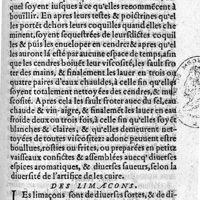 quel soyent iusques à ce qu'elles recommẽcent à
bouillir. En apres leurs testes & poictrines qu'el
les portẽt dehors leurs coquilles quand elles che
minent, soyent sequestrées de leurs dictes coquil
les & puis les enuelopper en cendre & apres qu'el
les auront là esté par aucune espace de temps, afin
que les cendres boiuẽt leur viscosité, les fault frot
ter des mains, & finalement les lauer en trois ou
quatre paires d'eaux chauldes, à celle fin qu'elles
soyent totalement nettoyées des cendres, & muc
cosité. Apres cela les fault froter auec du sel, eau
chaude & vin-aigre, & finalemẽt les lauer en eau
froide deux ou trois fois, à celle fin qu'elles soyent
netz & blanches, & qu'elles demeurent nettoy
ées de toutes viscosités: adonc peulent estre
boullues, rosties ou frites, ou preparées en petits
vaisseaux confictés & assemblées auecq' diuerses
espices aromatiques, & diuerses sauces, selon la
diuersité de l'artifice de les cuire.
DES LIMACONS.
LEs limaçons sont de diuerses sortes, & de di-